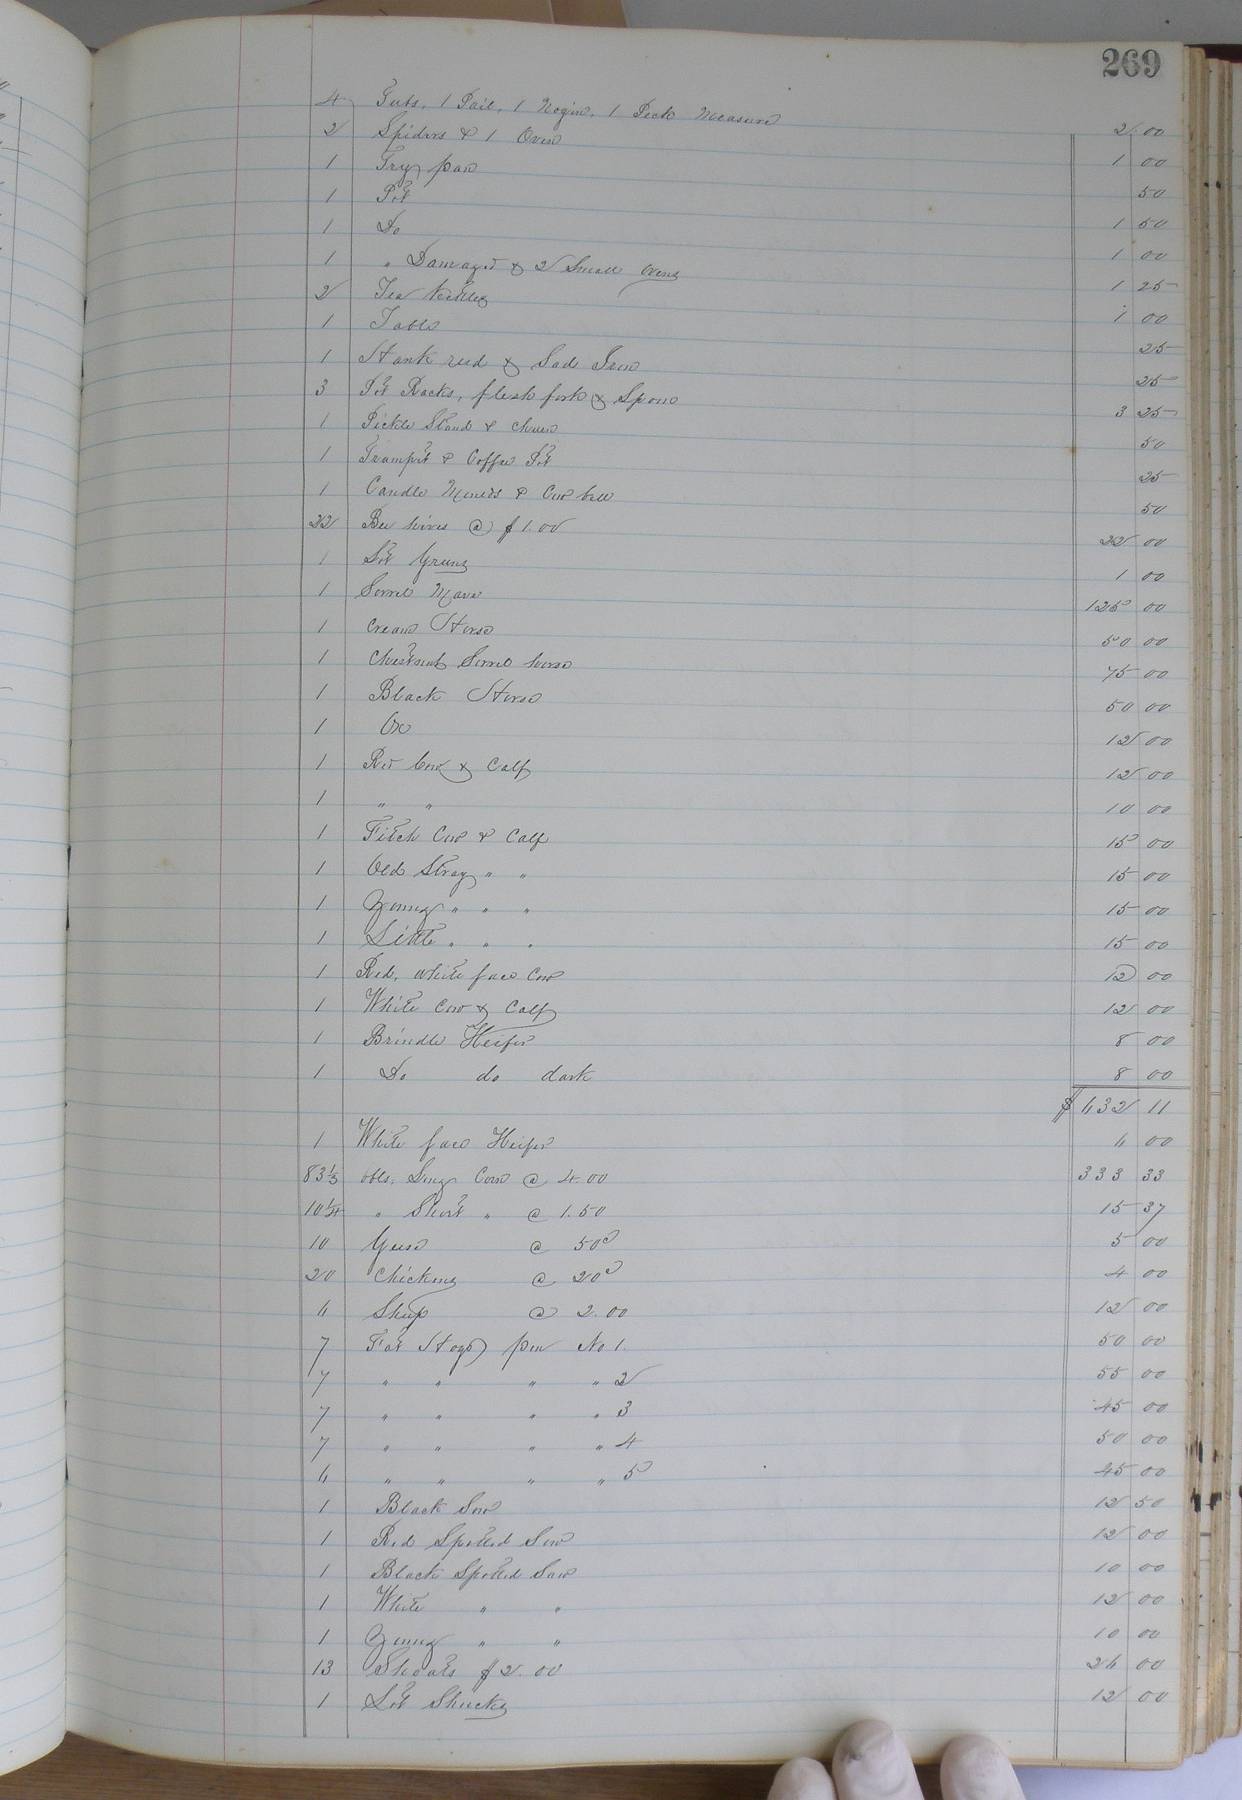 269
4 Tubs, 1 Pail, 1 Nogin, 1 Peck Measure 2 00
2 Spiders & 1 Oven 1 00
1 Fry pan 50
1 Pot 1 50
1 Do 1 00
1 " Damaged & 2 Small Ovens 1 25
2 Tea Kettles 1 00
1 Table 25
1 Hank reed & Sad Iron 25
3 Pot Racks, flesh fork & Spoon 3 25
1 Pickle Stand & Churn 50
1 Trumpet & Coffee Pot 25
1 Candle Moulds & Cow bell 50
22 Bee hives @ $1.00 22 00
1 Lot Greens 1 00
1 Sorrel Mare 125 00
1 Cream Horse 50 00
1 Chestnut Sorrel horse 75 00
1 Black Horse 50 00
1 Ox 12 00
1 Red Cow & Calf 12 00
1 " " 10 00
1 Fitch Cow & Calf 15 00
1 Old Stray " " 15 00
1 Young " " " 15 00
1 Little " " " 15 00
1 Red, White face Cow 12 00
1 White Cow & Calf 12 00
1 Brindle Heifer 8 00
1 Do do dark 8 00
$632 11
1 White face Heifer 6 00
83 1/3 bbls. Long Corn @ 4.00 333 33
10 1/4 " Short " @ 1.50 15 37
10 Geese @ 50c 5 00
20 Chickens @ 20c 4 00
6 Sheep @ 2.00 12 00
7 Fat Hogs pen No 1. 50 00
7 " " " " 2 55 00
7 " " " " 3 45 00
7 " " " " 4 50 00
6 " " " " 5 45 00
1 Black Sow 12 50
1 Red Spotted Sow 12 00
1 Black Spotted Sow 10 00
1 White " " 12 00
1 Young " " 10 00
13 Shoats $2.00 26 00
1 Lot Shucks 12 00